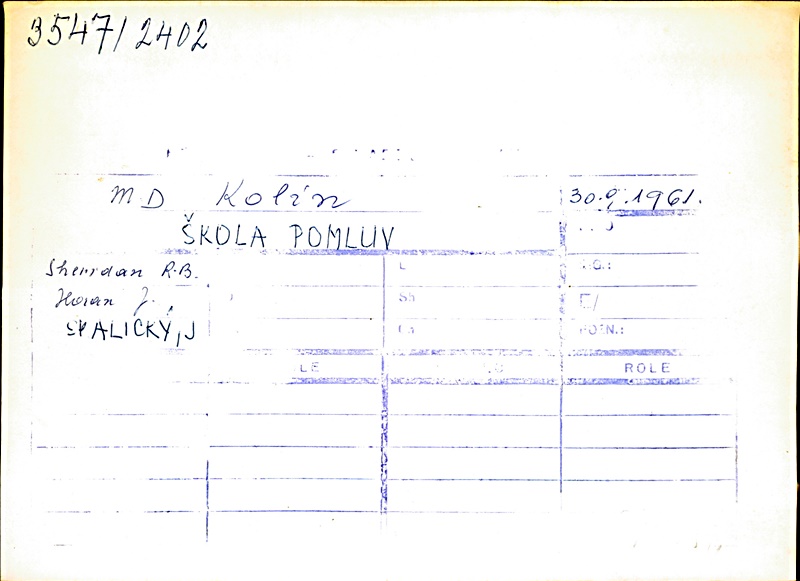 3547/2402
MD Kolín 30.9.1961.
ŠKOLA POMLUV
Sheridan R.B.
Horan J.
SPALICKÝ, J
E/
POZN.:
ROLE